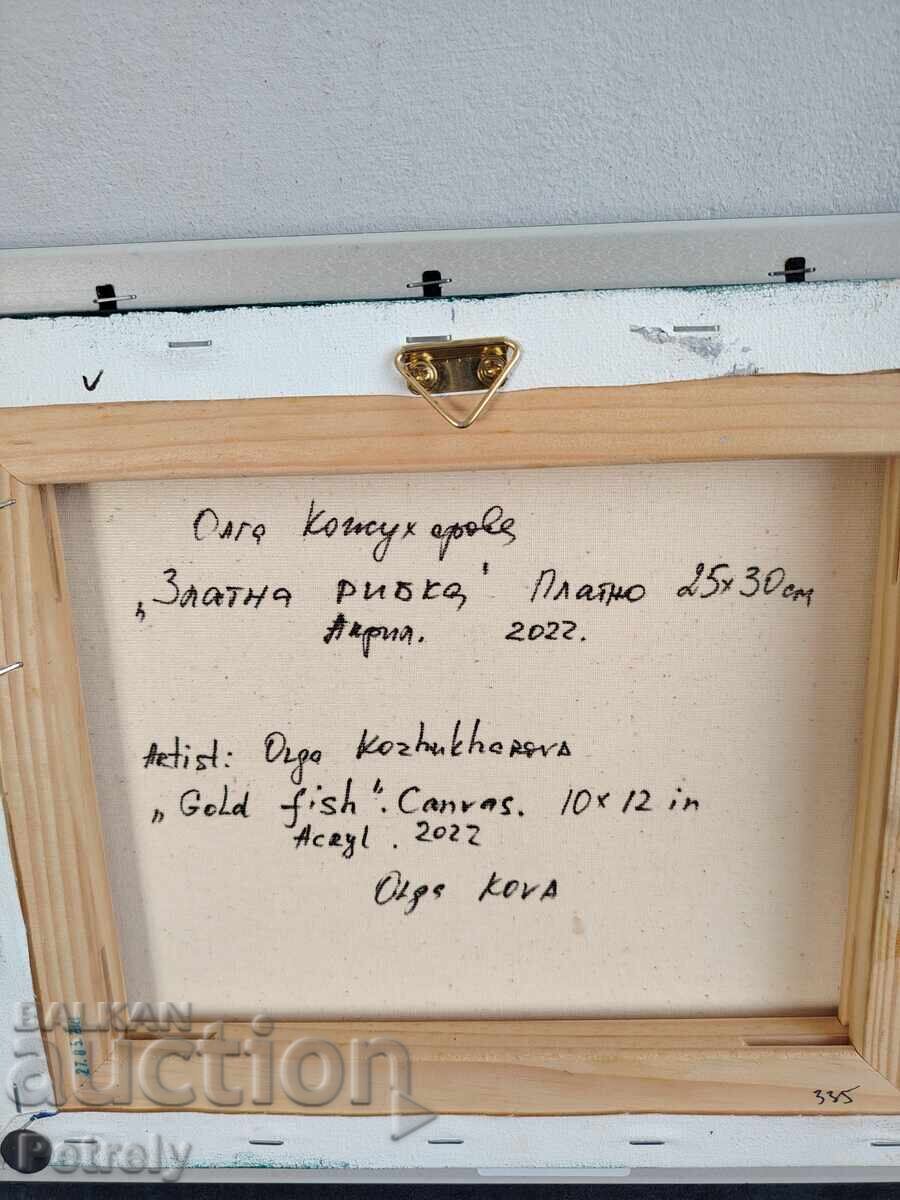 V
Олга Кожухарова
„Златна рибка" Платно 25x30см
Акрил. 2022.
Artist: Olga Kozhukharova
„Gold fish". Canvas. 10x12 in
Acryl. 2022
Olga Kova
335
BALKAN
auction
Petrely